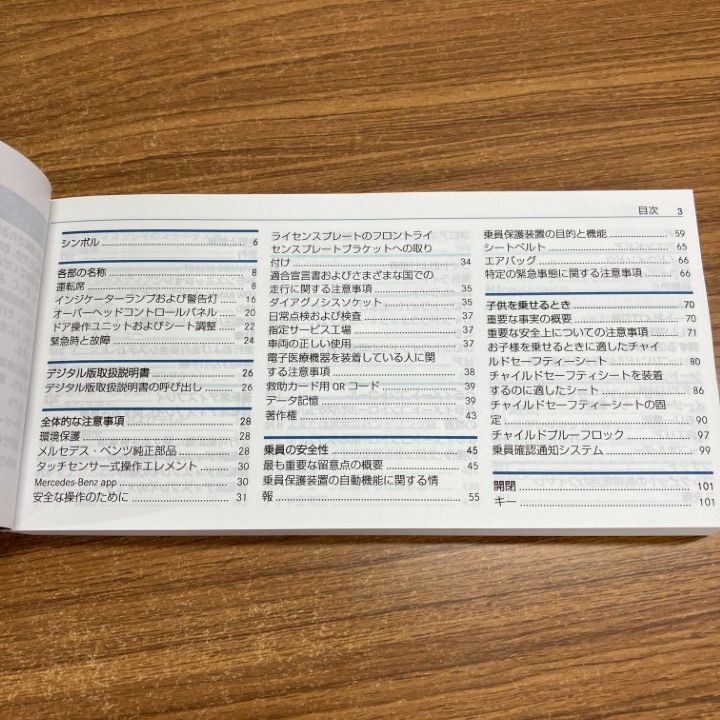 目次 3
シンボル 6
各部の名称 8
運転席 8
インジケーターランプおよび警告灯 16
オーバーヘッドコントロールパネル 20
ドア操作ユニットおよびシート調整 22
緊急時と故障 24
デジタル版取扱説明書 26
デジタル版取扱説明書の呼び出し 26
全体的な注意事項 28
環境保護 28
メルセデス・ベンツ純正部品 28
タッチセンサー式操作エレメント 30
Mercedes-Benz app 30
安全な操作のために 31
ライセンスプレートのフロントライ
センスプレートブラケットへの取り
付け 34
適合宣言書およびさまざまな国での
走行に関する注意事項 35
ダイアグノシスソケット 35
日常点検および検査 37
指定サービス工場 37
車両の正しい使用 37
電子医療機器を装着している人に関
する注意事項 38
救助カード用 QR コード 39
データ記憶 39
著作権 43
乗員の安全性 45
最も重要な留意点の概要 45
乗員保護装置の自動機能に関する情
報 55
乗員保護装置の目的と機能 59
シートベルト 65
エアバッグ 66
特定の緊急事態に関する注意事項 66
子供を乗せるとき 70
重要な事実の概要 70
重要な安全上についての注意事項 71
お子様を乗せるときに適したチャイ
ルドセーフティーシート 80
チャイルドセーフティシートを装着
するのに適したシート 86
チャイルドセーフティーシートの固
定 90
チャイルドプルーフロック 97
乗員確認通知システム 99
開閉 101
キー 101